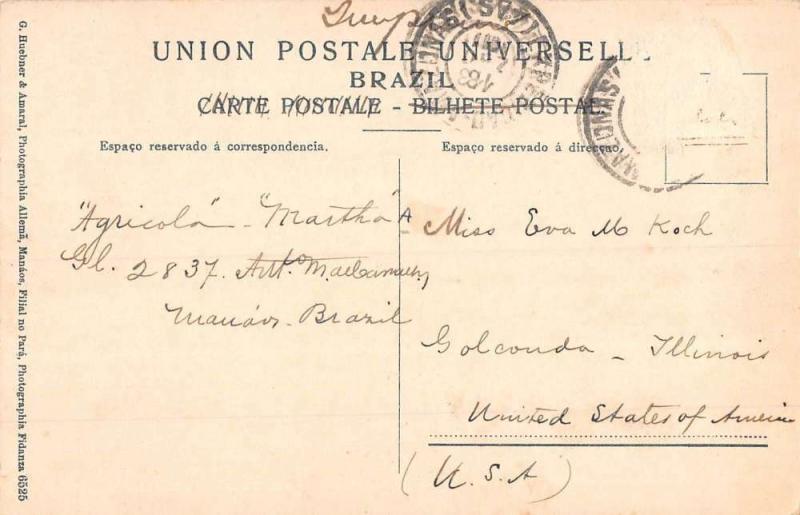 UNION POSTALE UNIVERSELLE
BRAZIL
CARTE POSTALE - BILHETE POSTAL
Espaço reservado á correspondencia.
Espaço reservado á direcção.
"Agricola" - "Martha"
Gl. 2837.
Manáos - Brazil
A - Miss Eva M Koch
Golconda - Illinois
United States of America
(U. S. A)
G. Huebner & Amaral, Photographia Allemã, Manáos, Filial no Pará, Photographia Fidanza 6525